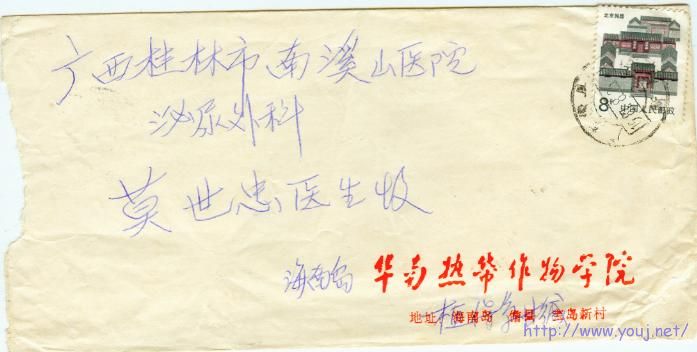 北京民居
8分
中国人民邮政
广西桂林市南溪山医院
泌尿外科
莫世忠医生收
海南岛 华南热带作物学院
地址 海南岛 儋县 宝岛新村
http://www.youj.net/